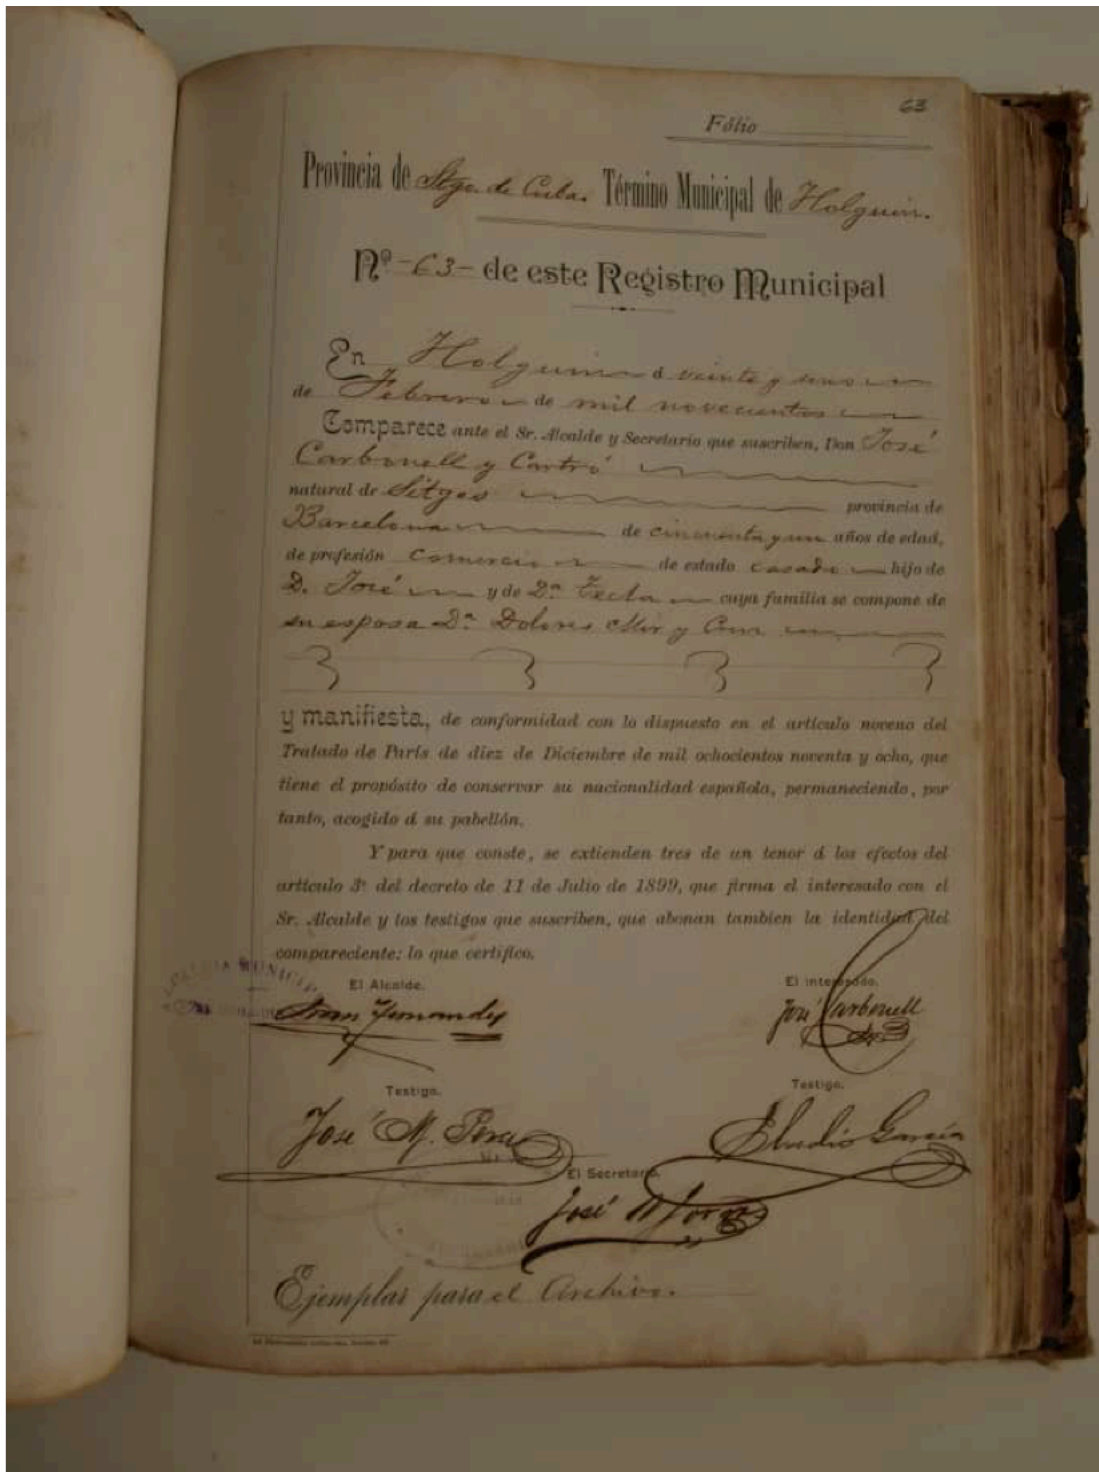 63
Fólio
Provincia de Stgo. de Cuba. Término Municipal de Holguin.
Nº -63- de este Registro Municipal
En Holguin á veinte y uno
de Febrero de mil novecientos
Comparece ante el Sr. Alcalde y Secretario que suscriben, Don José
Carbonell y Cartró
natural de Sitges provincia de
Barcelona de cincuenta y un años de edad,
de profesión Comercio de estado casado hijo de
D. José y de Dª Tecla cuya familia se compone de
su esposa Dª Dolores Mir y
y manifiesta, de conformidad con lo dispuesto en el artículo noveno del
Tratado de París de diez de Diciembre de mil ochocientos noventa y ocho, que
tiene el propósito de conservar su nacionalidad española, permaneciendo, por
tanto, acogido á su pabellón.
Y para que conste, se extienden tres de un tenor á los efectos del
artículo 3º del decreto de 11 de Julio de 1899, que firma el interesado con el
Sr. Alcalde y los testigos que suscriben, que abonan tambien la identidad del
compareciente: lo que certifico.
El Alcalde. El interesado.
Fernandez José Carbonell
Testigo. Testigo.
José M. Eladio García
El Secretario.
José
Ejemplar para el Archivo.